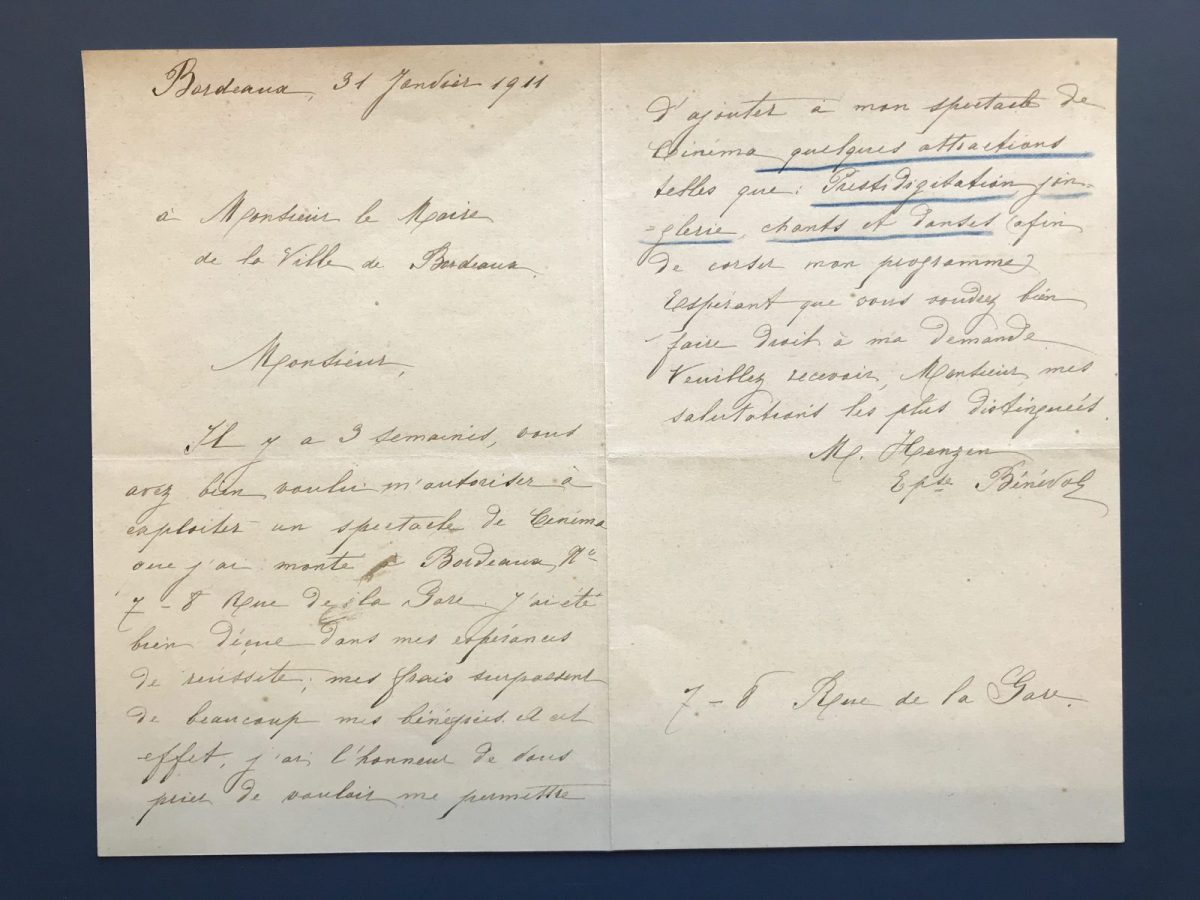 Bordeaux, 31 Janvier 1911
à Monsieur le Maire
de la Ville de Bordeaux.
Monsieur,
Il y a 3 semaines, vous
avez bien voulu m'autoriser à
exploiter un spectacle de Cinéma
que j'ai monté à Bordeaux Nº
7-8 Rue de la Gare. J'ai été
bien déçue dans mes espérances
de réussite; mes frais surpassent
de beaucoup mes bénéfices. A cet
effet, j'ai l'honneur de vous
prier de vouloir me permettre
d'ajouter à mon spectacle de
Cinéma quelques attractions
telles que: Prestidigitation jon-
-glerie, chants et danses (afin
de corser mon programme)
Espérant que vous voudrez bien
faire droit à ma demande.
Veuillez recevoir, Monsieur, mes
salutations les plus distinguées.
M. Henzen
Epse Bénévol
7-8 Rue de la Gare.